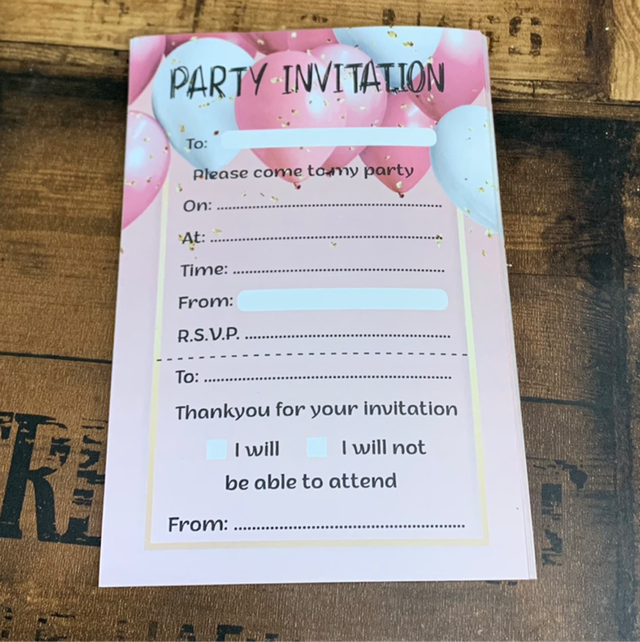 PARTY INVITATION
To:
Please come to my party
On: ........................................
At: ........................................
Time: ........................................
From:
R.S.V.P. ........................................
To: ........................................
Thankyou for your invitation
I will I will not
be able to attend
From: ........................................